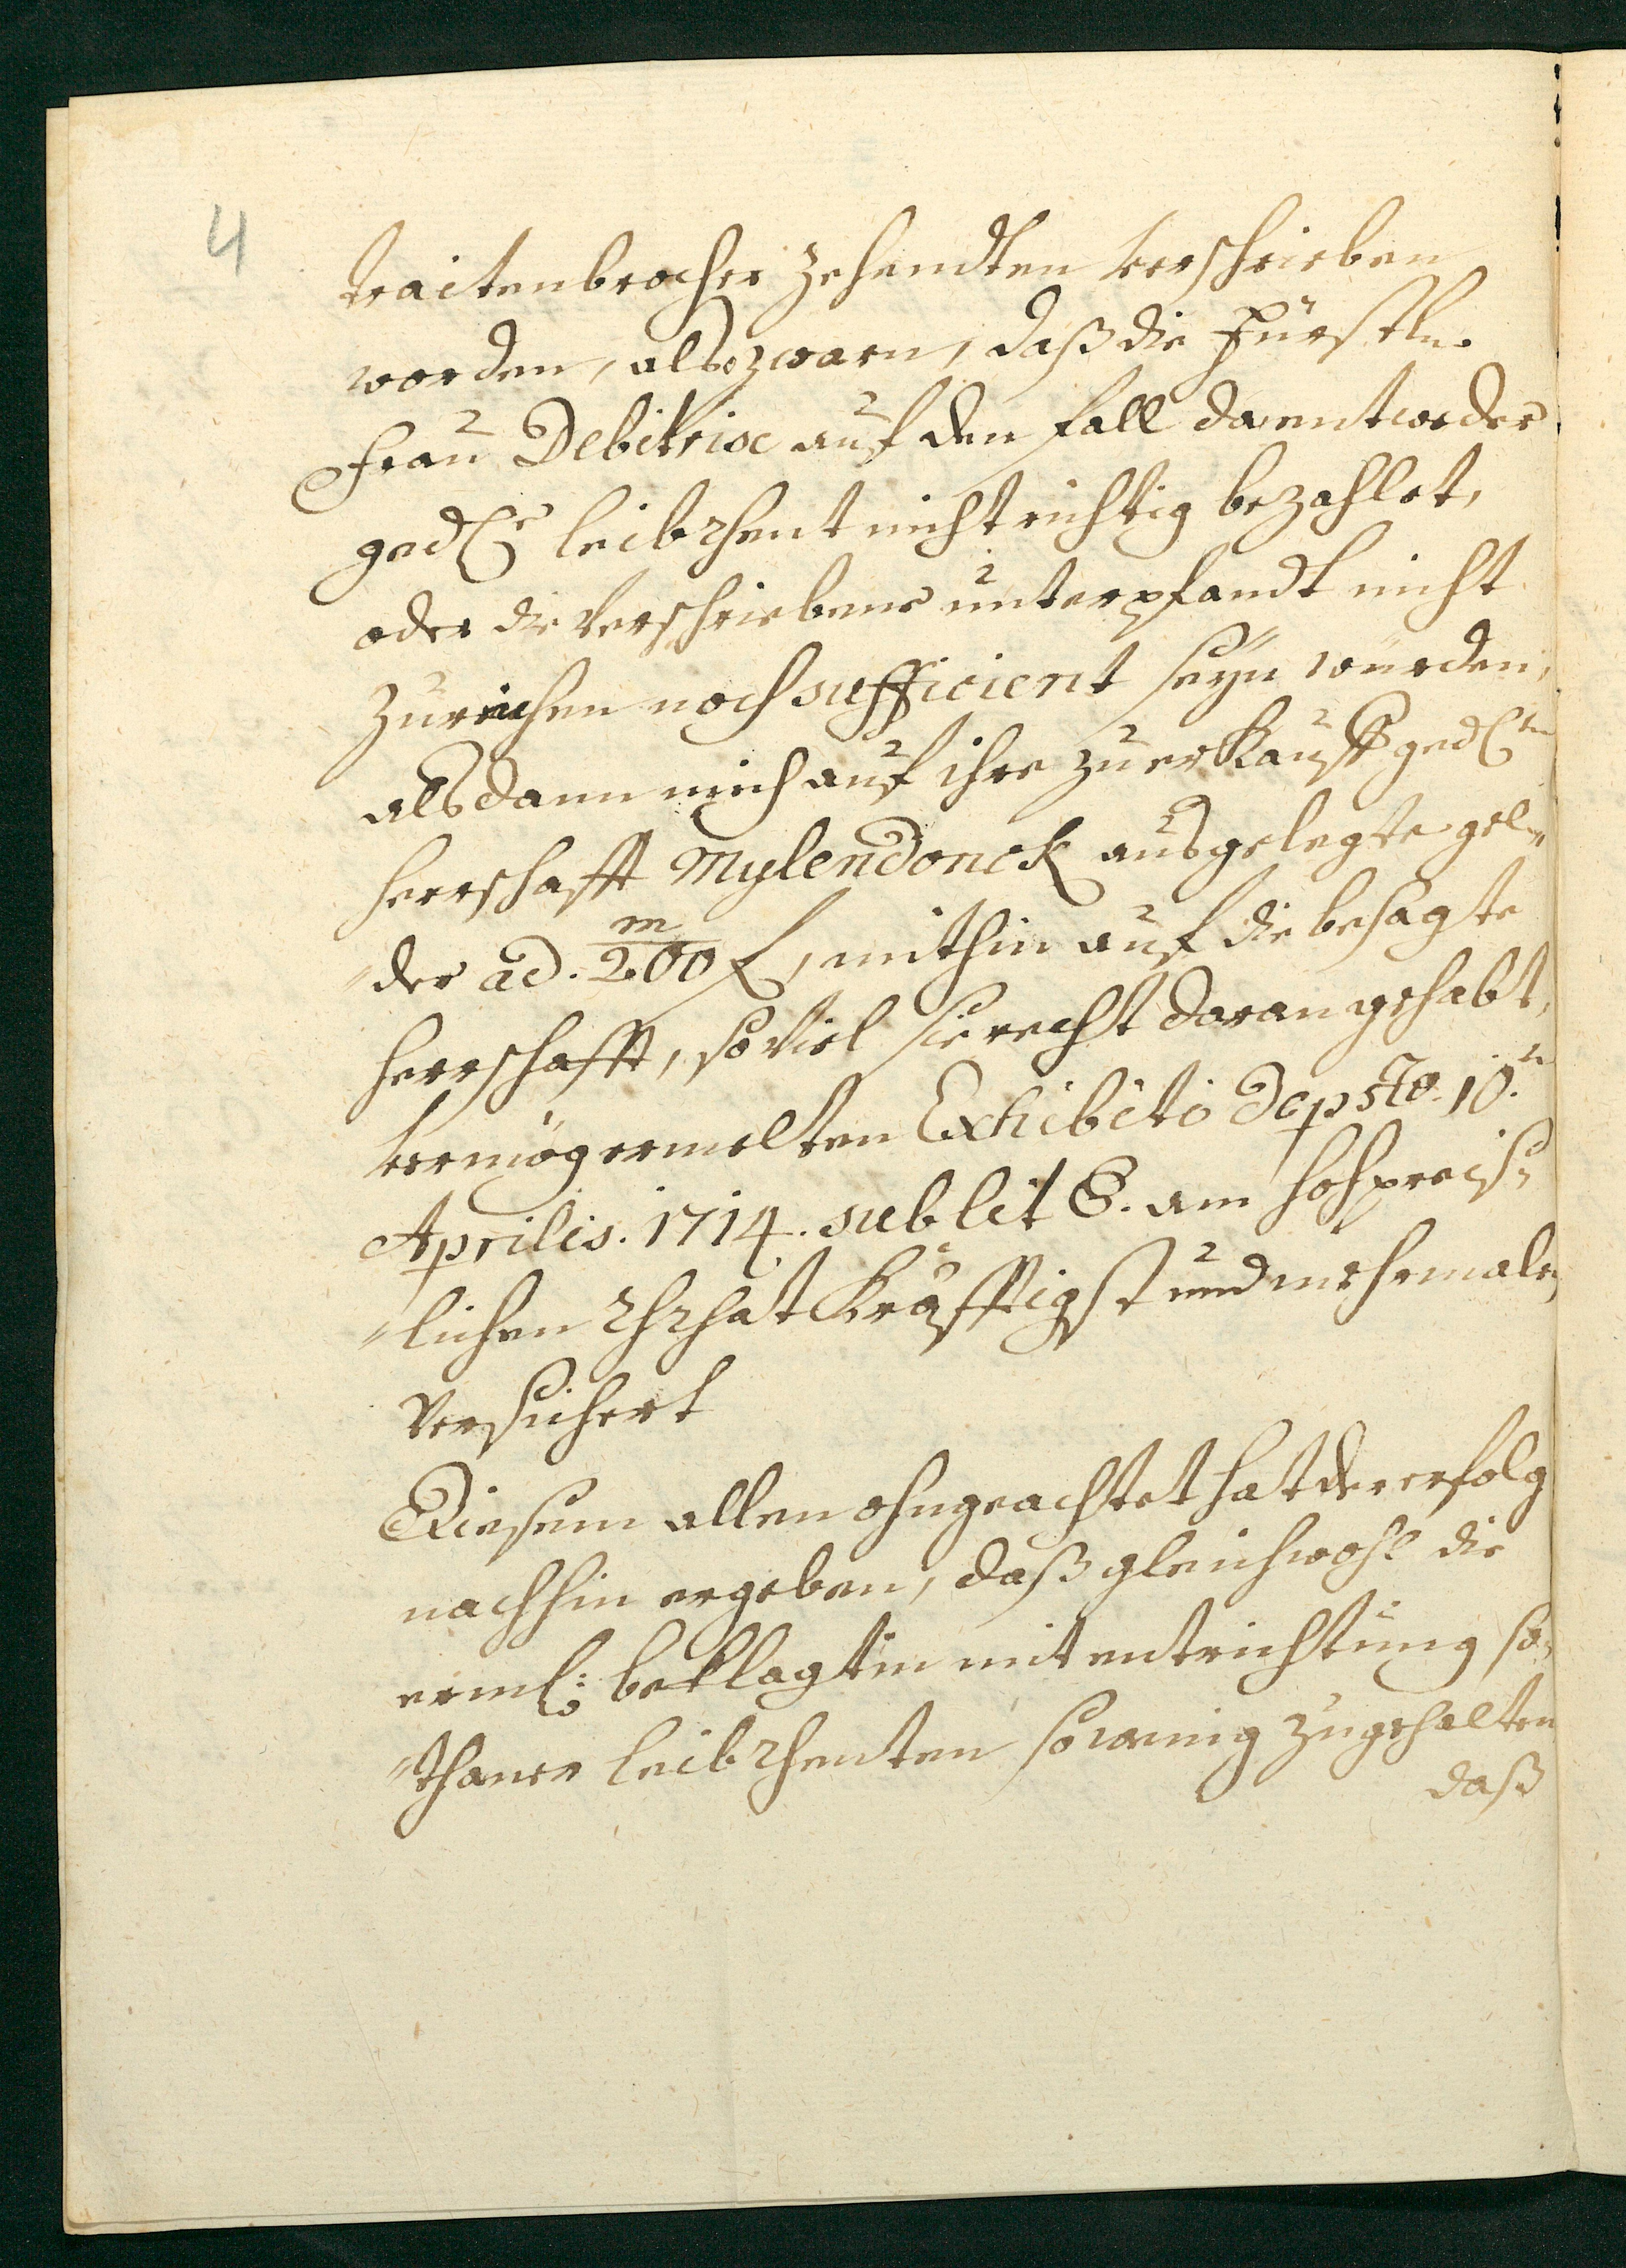 4
traitenbrocher zehendten verschrieben
worden, also zwarn, daß die Fürstln.
Frau Debitrix auf den fall da entweder
gedHe leib rhent nicht richtig bezahlet,
oder die verschriebene unterpfandt nicht
zureichen noch sufficient seyn würden,
alsdann mich auf ihre zu erkauff gedHtn
herrschafft Mylendonck ausgelegte gel„
„der ad. m/200 f, mithin auf die besagte
herrschafft, so viel sie recht daran gehabt,
vermög ermelten Exhibiti de psto. 10.n
Aprilis. 1714. sub lit E. am hochpreiß„
„lichen rhrhat kräfftigst und mehrmalen
versichert
Diesem allem ohngeachtet hat der erfolg
nachhin ergeben, daß gleichwohl die
erml: beklagtin mit entrichtung so„
„thaner leib rhenten so wenig zugehalten
daß